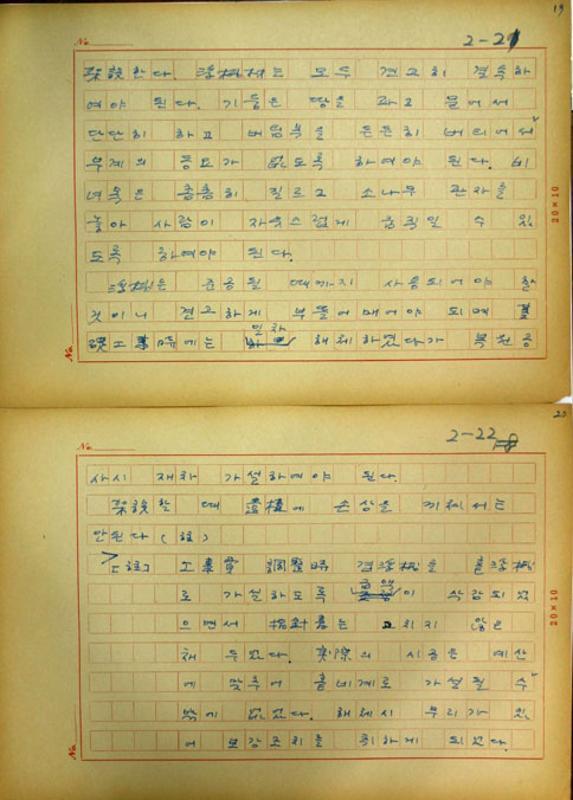 19
No.
2-21
架設한다. 浮椺材는 모두 견고히 결속하
여야 된다. 기둥은 땅을 파고 묻어서
단단히 하고 버팀목을 든든히 버티어서
무게의 동요가 없도록 하여야 된다. 비
녀목은 촘촘히 지르고 소나무 판자를
놓아 사람이 자유스럽게 움직일 수 있
도록 하여야 된다.
은 준공될 때까지 사용되어야 할
것이니 견고하게 붙들어매어야 되며 基
礎工事時에는 일차 해체하였다가 복원공
No.
20×10
20
2-22
No.
사시 재차 가설하여야 된다.
架設할 때 遺構에 손상을 끼쳐서는
안된다 (註)
[註] 工事費 調整時 겹을 홑
로 가설하도록 금액이 삭감되었
으면서 는 고치지 않은
채 두었다. 実際의 시공은 예산
에 맞추어 홑비계로 가설될 수
밖에 없었다. 해체시 무리가 있
어 보강조치를 취하게 되었다.
No.
20×10